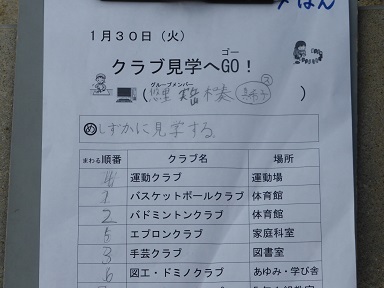 はん
1月30日（火）
ゴー
クラブ見学へGO！
グループメンバー
（悠里　　）
めしずかに見学する。
まわる順番　クラブ名　場所
運動クラブ　運動場
1　バスケットボールクラブ　体育館
2　バドミントンクラブ　体育館
5　エプロンクラブ　家庭科室
3　手芸クラブ　図書室
6　図工・ドミノクラブ　あゆみ・学び舎